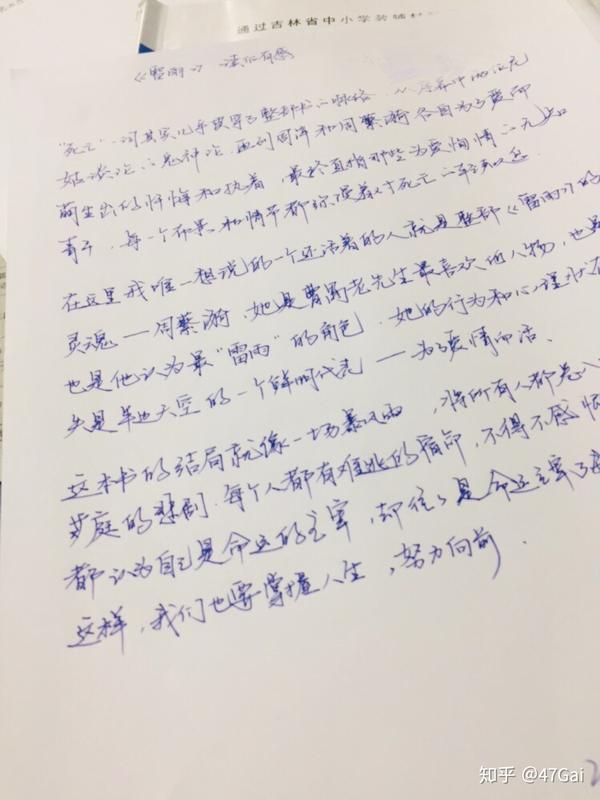 通过吉林省中小学教辅材
《雷雨》读后有感
"死亡"一词其实几乎贯穿了整部书的脉络，从序幕中的
姑谈论的鬼神论，再到周萍和周蘩漪各自为了爱而
萌生出的忏悔和执着，最终直指那些为爱殉情的无知
青年，每一个布景和情节都弥漫着死亡的气息。
在这里我唯一想说的一个还活着的人就是整部《雷雨》的
灵魂——周蘩漪，她是曹禺老先生最喜欢的人物，也是
也是他认为最"雷雨"的角色，她的行为和心理状
头是单边天空的一个鲜明代表——为了爱情而活、
这本书的结局就像一场暴风雨，将所有人都卷入
家庭的悲剧，每个人都有难逃的宿命，不得不感慨
都认为自己是命运的主宰，却往々是命运主宰了
这样，我们也要掌握人生，努力向前．
知乎 @47Gai